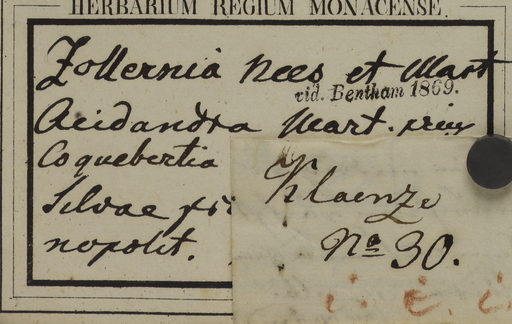 HERBARIUM REGIUM MONACENSE.
Zollernia Nees et Mart
vid. Bentham 1869.
Acidandra Mart. prius
Coquebertia
Silvae
nopolit.
No 30.
i. e. i